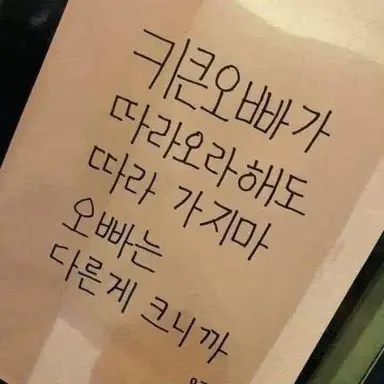 키큰오빠가
따라오라해도
따라 가지마
오빠는
다른게 크니까